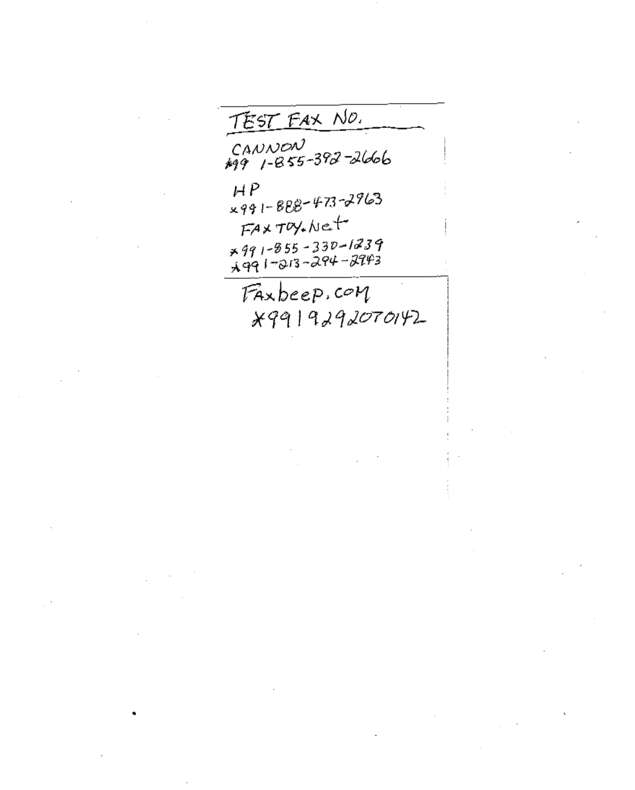 TEST FAX NO.
CANNON
*99 1-855-392-2666
HP
*991-888-473-2963
FAXTOY.Net
*991-855-330-1239
*991-213-294-2943
FAxbeep.COM
*9919292070142